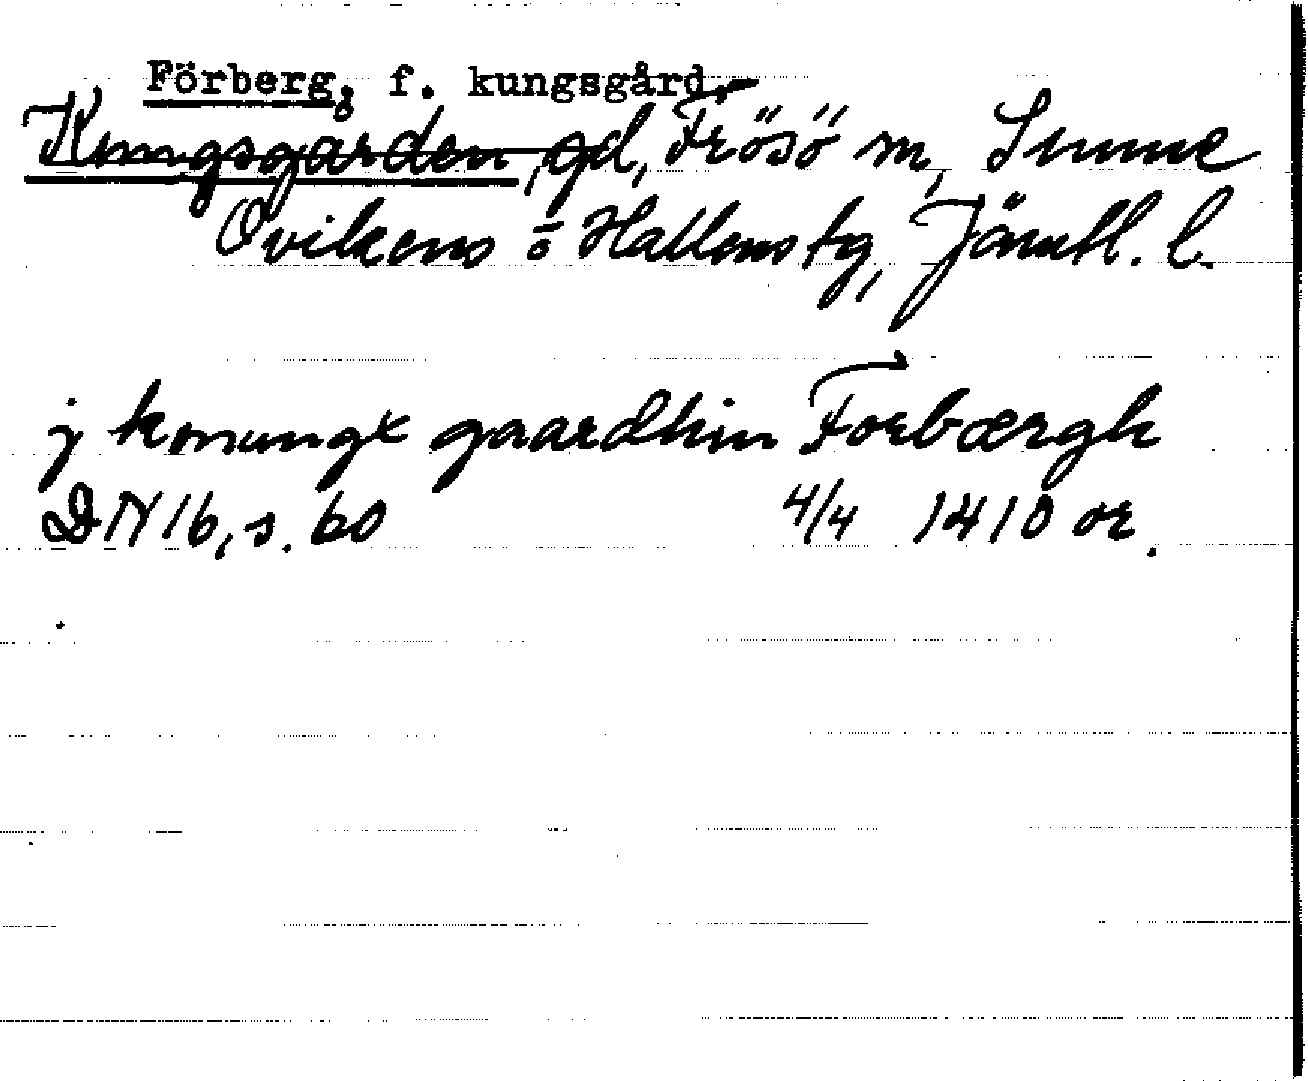 Förberg, f. kungsgård,
Kungsgården, gd, Frösö sn, Sunne
Ovikens o Hallens tg, Jämtl. l.
j konungx gaardhin Forbærgh
DN 16, s. 60 4/4 1410 or.